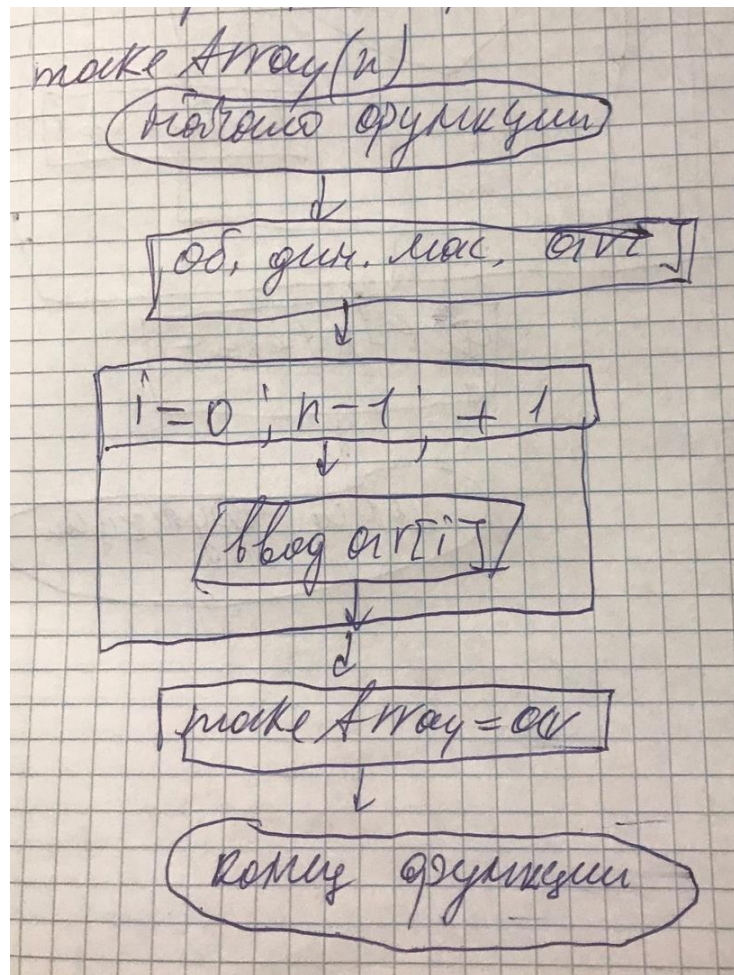 make Array(n)
начало функции
об. дин. мас. arr[]
i=0; n-1; +1
ввод arr[i]
make Array = arr
конец функции